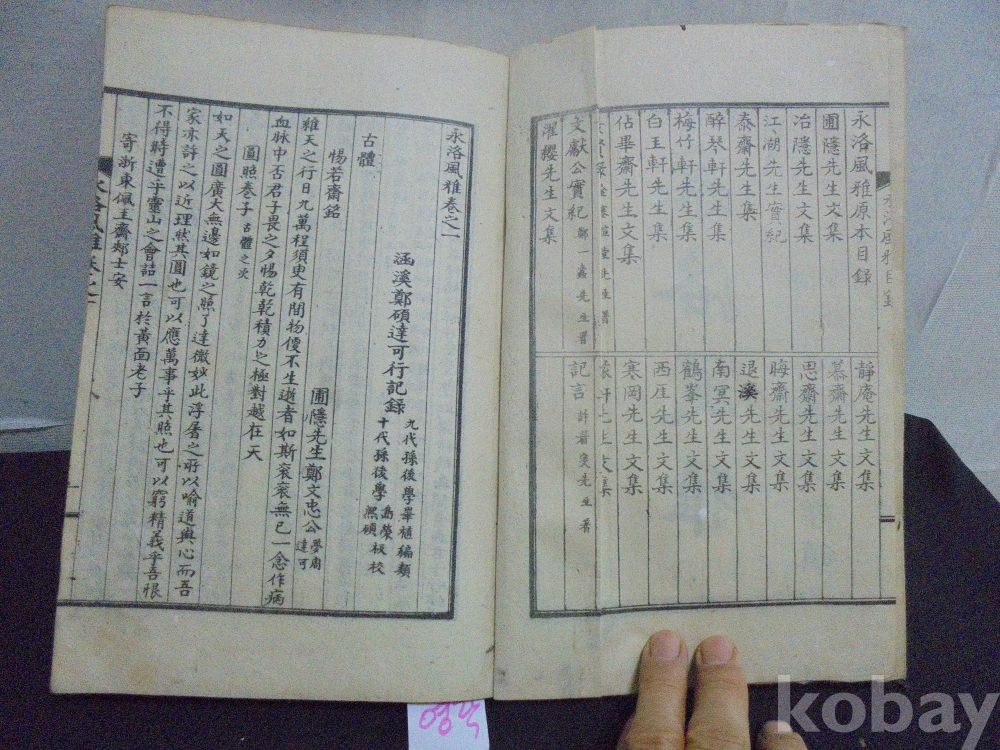 永洛風雅原本目錄
圃隱先生文集
冶隱先生文集
江湖先生實紀
泰齋先生文集
醉琴軒先生集
梅竹軒先生集
白玉軒先生文集
佔畢齋先生文集
文獻公實紀 鄭一蠹先生著
濯纓先生文集
靜庵先生文集
慕齋先生文集
思齋先生文集
晦齋先生文集
退溪先生文集
南冥先生文集
鶴峯先生文集
西厓先生文集
寒岡先生文集
記言 許眉叟先生著
永洛風雅卷之一
涵溪鄭碩達可行記錄
九代孫後學畢植編類
十代孫後學
古體
惕若齋銘
圃隱先生鄭文忠公 夢周 達可
維天之行日九萬程須臾有間物便不生逝者如斯袞袞無已一念作病
血脉中否君子畏之夕惕乾乾積力之極對越在天
圓照卷子 古體之次
如天之圓廣大無邊如鏡之照了達微妙此浮屠之所以喻道與心而吾
家亦許之以近理然其圓也可以應萬事乎其照也可以窮精義乎吾恨
不得時遭乎靈山之會詰一言於黃面老子
寄浙東佩玉齋鄭士安
永洛風雅卷之一
영락
kobay